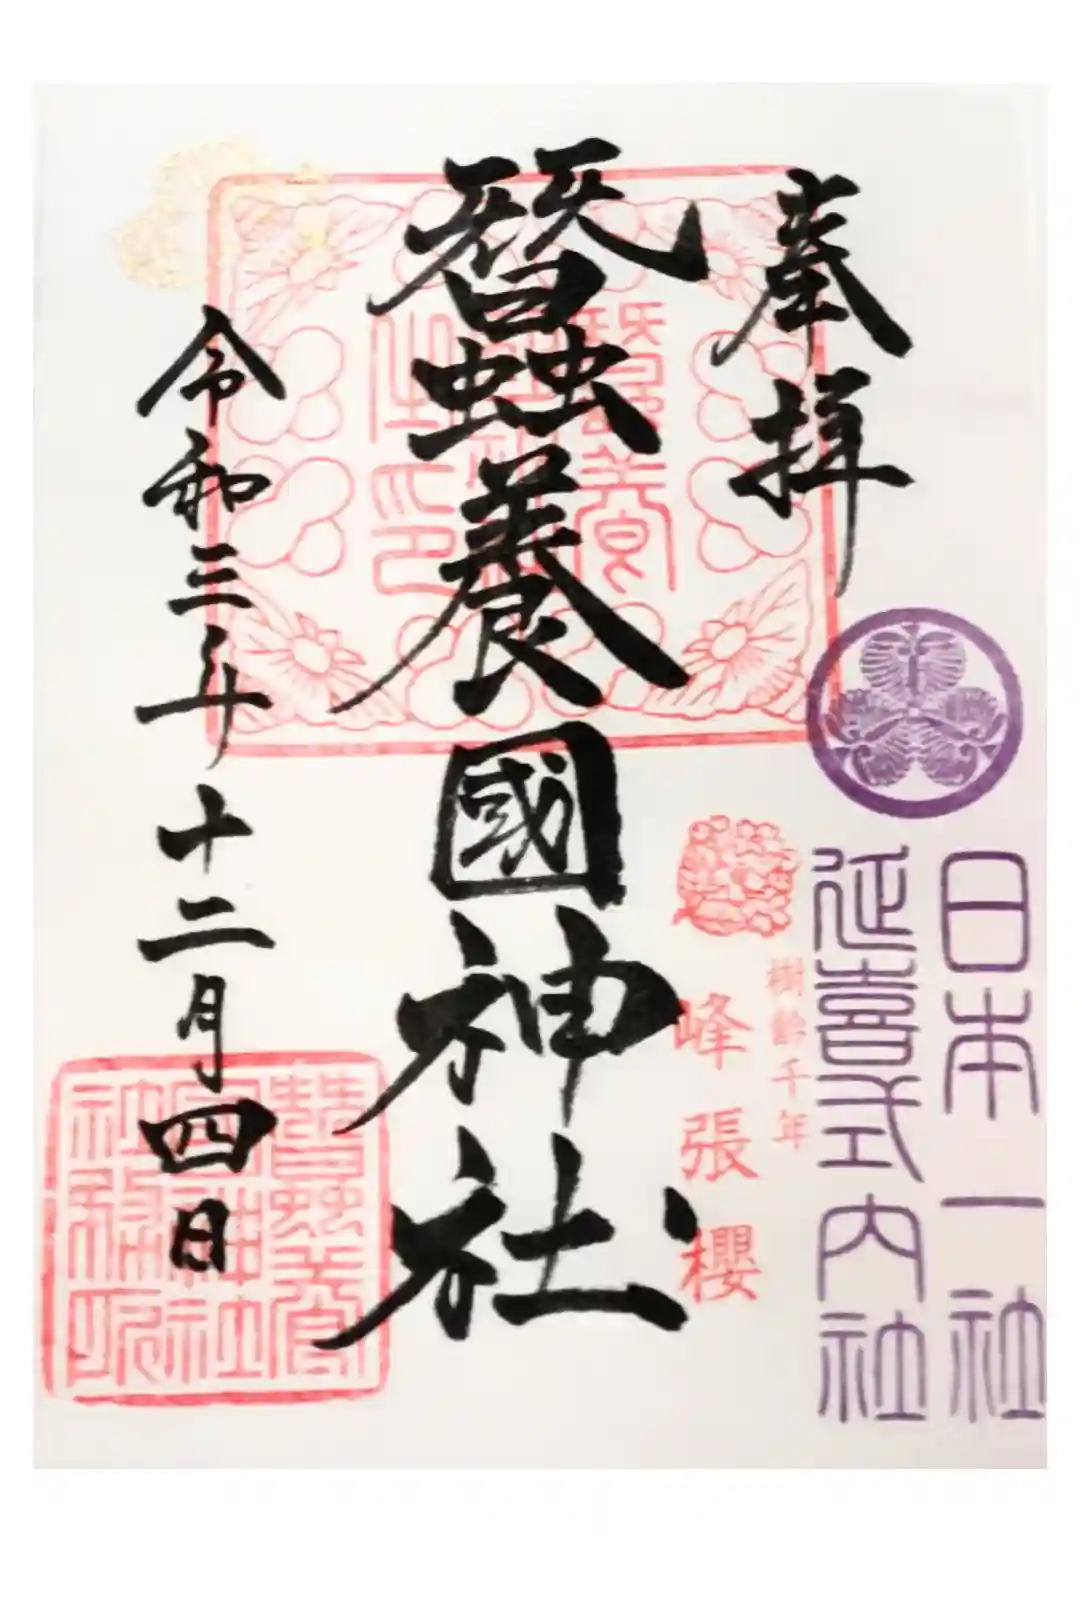 日本一社
延喜式内社
奉拝
樹齢千年
峰張櫻
蠶養國神社
令和三年十二月四日
蠶養
國神社
社務所